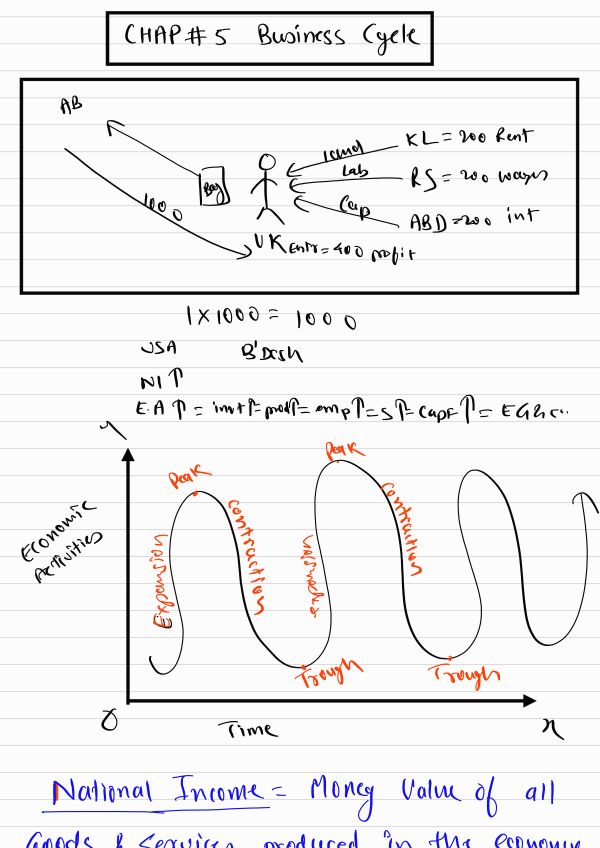 CHAP # 5 Business Cycle
AB
Bag
1000
land
Lab
Cap
KL = 200 Rent
RS = 200 wages
ABD = 200 int
UK Entr = 400 profit
1 X 1000 = 1000
USA B'Desh
NI ↑
E.A ↑ = invt ↑ = prod ↑ = emp ↑ = S ↑ = CapF ↑ = EG
Y
Economic
Activities
Peak
Expansion
Contraction
Trough
Peak
Expansion
Contraction
Trough
O
Time
X
National Income = Money Value of all
Goods & Services produced in the economy